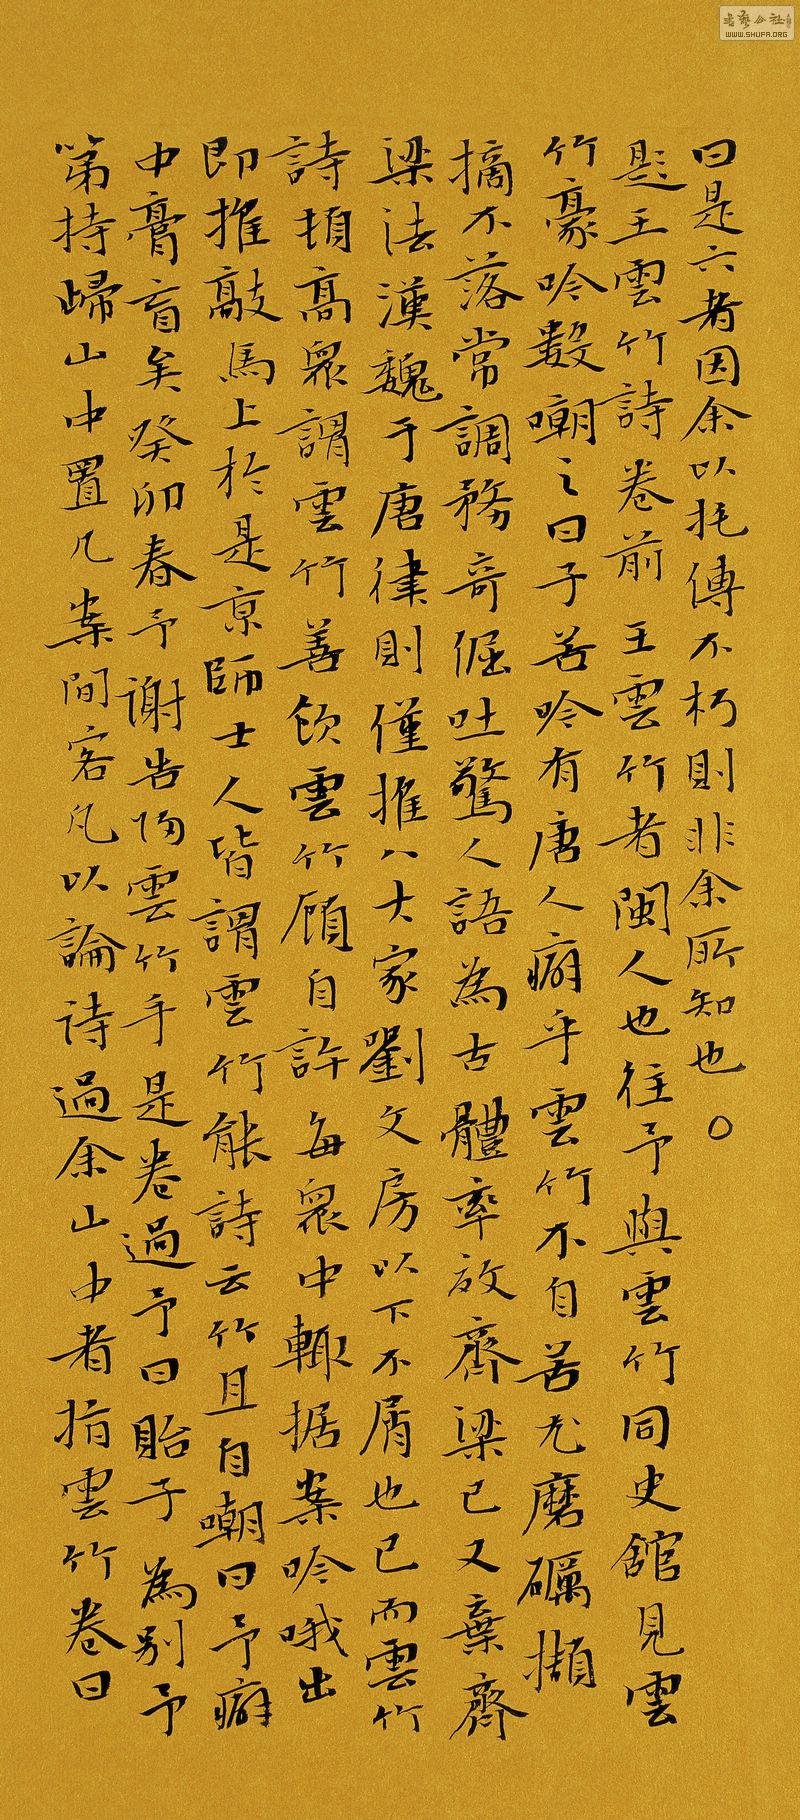 曰是六者因余以托傳不朽則非余所知也○
題王雲竹詩卷前王雲竹者閩人也往予與雲竹同史舘見雲
竹豪吟數嘲之曰子苦吟有唐人癖乎雲竹不自苦尤磨礪擷
摘不落常調務奇倔吐驚人語為古體率放齊梁已又棄齊
梁法漢魏于唐律則僅推八大家劉文房以下不屑也已而雲竹
詩頓高衆謂雲竹善飲雲竹顧自許每衆中輙据案吟哦出
即推敲馬上於是京師士人皆謂雲竹能詩云竹且自嘲曰予癖
中膏盲矣癸卯春予謝告归雲竹手是卷過予曰貽子為別予
第持歸山中置几案間客凡以論詩過余山中者指雲竹卷曰
WWW.SHUFA.ORG